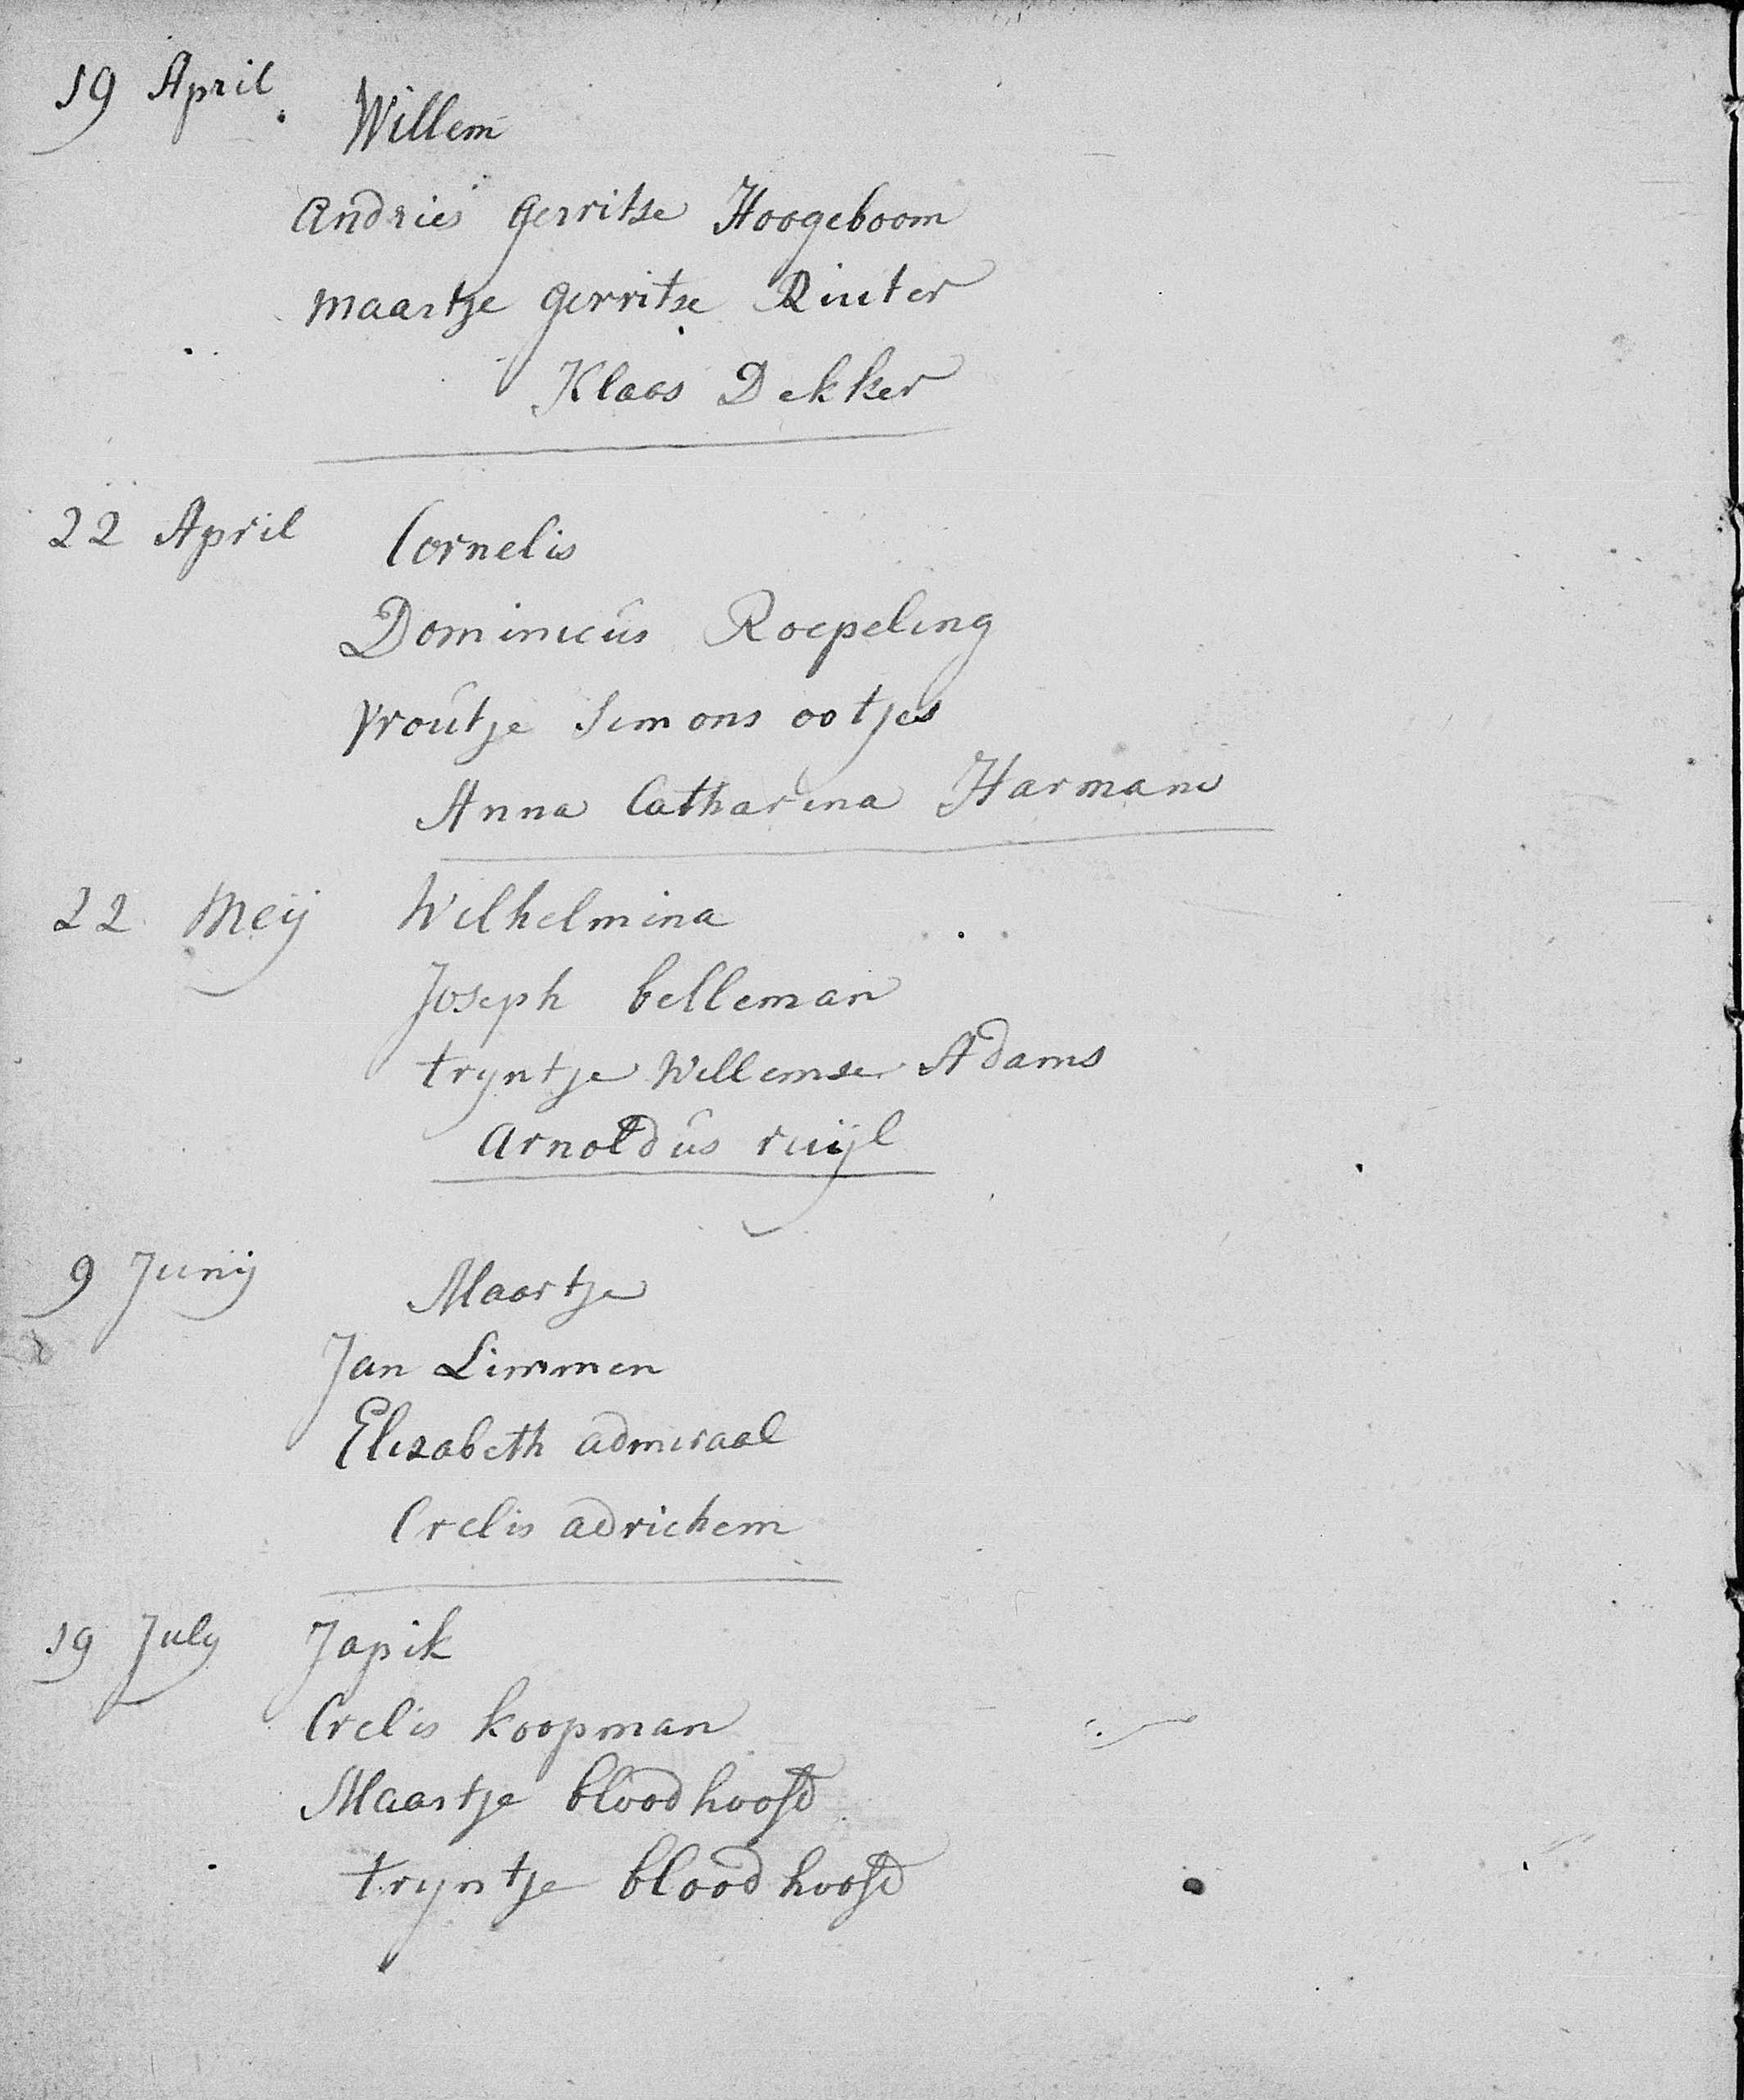 19 April
Willem
Andries gerritse Hoogeboom
Maartje gerritse Ruiter
Klaas Dekker
22 April
Cornelis
Dominicus Roepeling
Vroutje Simons ootjes
Anna Catharina Harmans
22 Meij
Wilhelmina
Joseph belleman
tryntje Willemse Adams
Arnoldus ruijl
9 Junij
Maartje
Jan Limmen
Elisabeth admiraal
Crelis adrichem
19 July
Japik
Crelis koopman
Maartje bloodhoofd
tryntje bloodhoofd